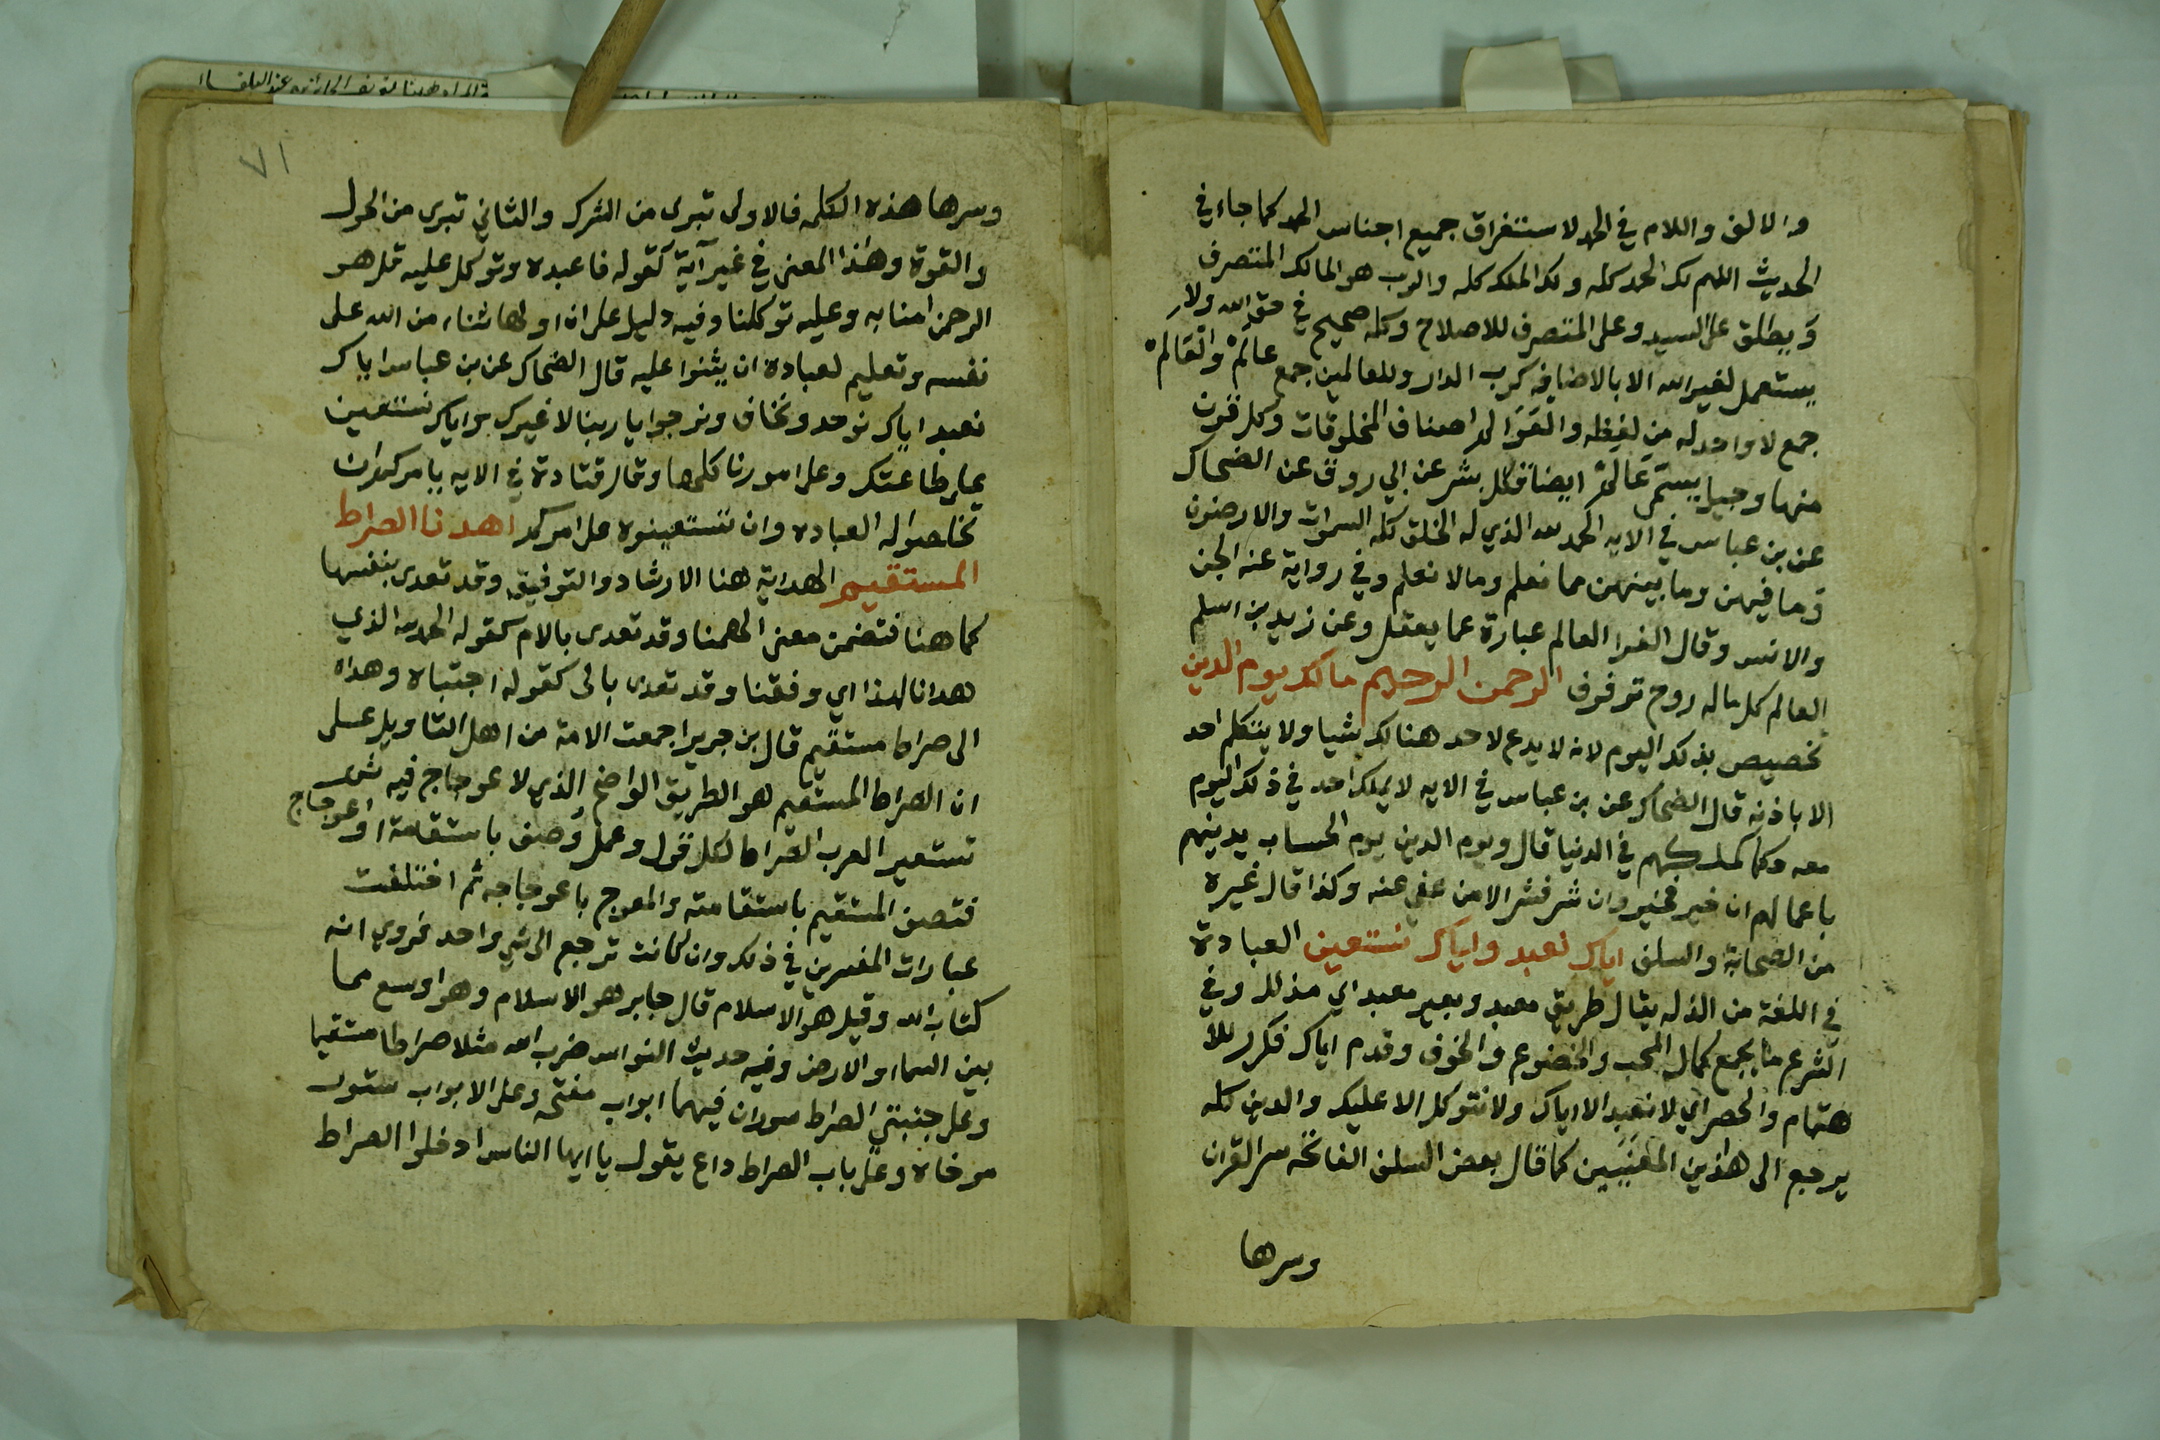 والالف واللام في الحمد لاستغراق جميع اجناس الحمد كما جاء في
الحديث اللهم لك الحمد كله ولك الملك كله والرب هو المالك المتصرف
ويطلق على السيد وعلى المتصرف للاصلاح وكله صحيح في حق الله ولا
يستعمل لغير الله الا بالاضافه كرب الدار وللعالمين جمع عالم والعالم
جمع لا واحد له من لفظه والعوالم اصناف المخلوقات وكل قرن
منها وجيل يسمى عالم ايضا قال بشر عن ابي روق عن الضحاك
عن بن عباس في الايه الحمد لله الذي له الخلق كله السموات والارضون
وما فيهن وما بينهن مما نعلم ومالا نعلم وفي رواية عنه الجن
والانس وقال الفرا العالم عبارة عما يعقل وعن زيد بن اسلم
العالم كل ماله روح ترفرف الرحمن الرحيم مالك يوم الدين
تخصيص بذلك اليوم لانه لا يدع لاحد هنالك شيا ولا يتكلم احد
الا باذنه قال الضحاك عن بن عباس في الايه لا يملك احد في ذلك اليوم
معه وكما كملكهم في الدنيا قال ويوم الدين يوم الحساب يدينهم
باعمالهم ان خير فخير وان شر فشر الا من عفي عنه وكذا قال غيره
من الصحابة والسلف اياك نعبد واياك نستعين العبادة
في اللغة من الذله يقال طريق معبد وبعير معبد اي مذلل وفي
الشرع ما يجمع كمال المحب والخضوع والخوف وقدم اياك فكرر للا
هتمام والحصر اي لا نعبد الا اياك ولا نتوكل الا عليك والدين كله
يرجع الى هذين المعنيين كما قال بعض السلف الفاتحه سر القران
وسرها
٧١
وسرها هذه الكلمه فالاولى تبرى من الشرك والثاني تبرى من الحول
والقوة وهذا المعنى في غير آية كقوله فاعبده وتوكل عليه قل هو
الرحمن امنا به وعليه توكلنا وفيه دليل على ان اولها ثناء من الله على
نفسه وتعليم لعبادة ان يثنوا عليه قال الضحاك عن بن عباس اياك
نعبد اياك نوحد ونخاف ونرجوا يا ربنا لا غيرك واياك نستعين
على طاعتك وعلى امورنا كلها وقال قتادة في الايه يامركم ان
تخلصوا له العباده وان تستعينوه على امركم اهدنا الصراط
المستقيم الهداية هنا الارشاد والتوفيق وقد تعدى بنفسها
كما هنا فتضمن معنى الهمنا وقد تعدى بالام كقوله الحمد لله الذي
هدانا لهذا اي وفقنا وقد تعدى بالى كقوله اجتباه وهداه
الى صراط مستقيم قال بن جرير اجمعت الامة من اهل التاويل على
ان الصراط المستقيم هو الطريق الواضح الذي لا عوجاج فيه ثم
تستعير العرب الصراط لكل قول وعمل وصف باستقامة او عوجاج
فتصف المستقيم باستقامته والمعوج باعوجاجه ثم اختلفت
عبارات المفسرين في ذلك وان كانت ترجع الى شي واحد فروي انه
كتاب الله وقيل هو الاسلام قال جابر هو الاسلام وهو اوسع مما
بين السماء والارض وفيه حديث النواس ضرب الله مثلا صراطا مستقيما
وعلى جنبتي الصراط سوران فيهما ابواب مفتحه وعلى الابواب ستور
مرخاه وعلى باب الصراط داع يقول يا ايها الناس ادخلوا الصراط